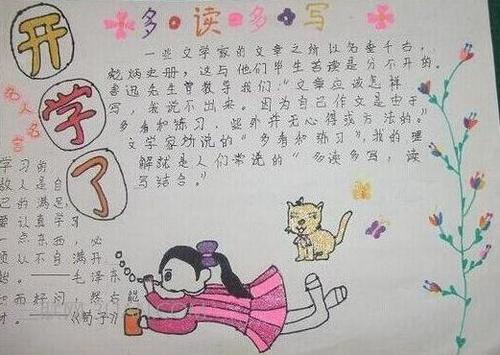 开学了
多读多写
一些文学家的文章之所以名垂千古，
彪炳史册，这与他们毕生苦读是分不开的。
鲁迅先生曾教导我们："文章应该怎样
写，我说不出来。因为自己作文是由于
多看和练习，此外并无心得或方法的。"
文学家所说的"多看和练习"，我的理
解就是人们常说的"多读多写，读
写结合。"
名人名言
学习的
敌人是自
己的满足，
要认真学习
一点东西，必
须从不自满开
始。——毛泽东
知而好问，然后能
才。——《荀子》